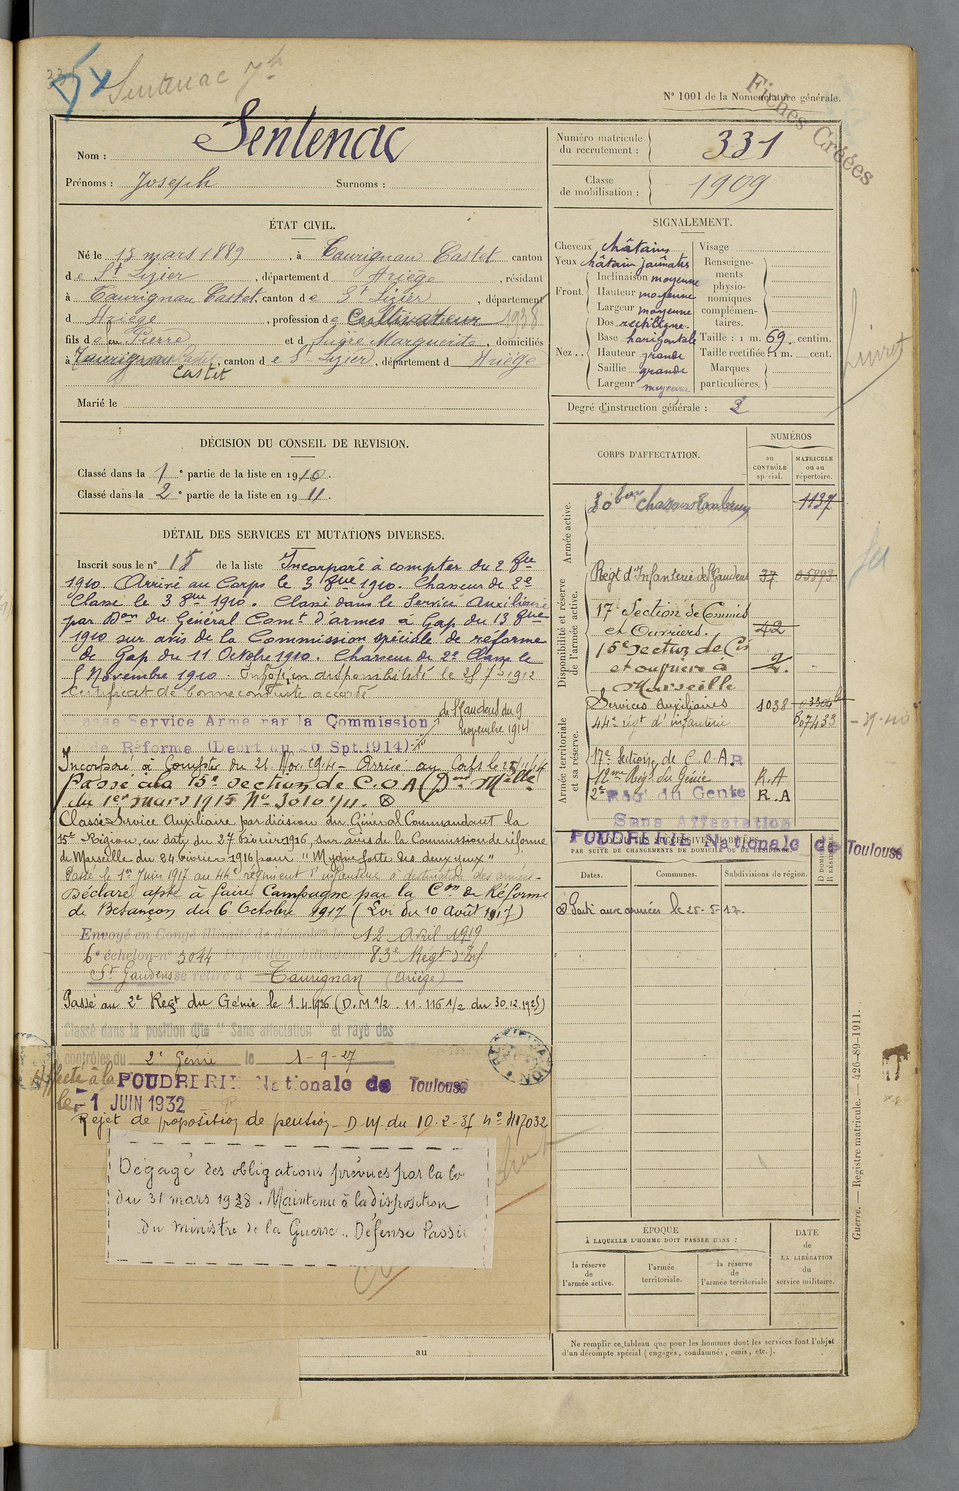 Sentenac Jh
N° 1001 de la Nomenclature générale.
Fiches Créées
Nom : Sentenac
Prénoms : Joseph Surnoms :
Numéro matricule du recrutement : 331
Classe de mobilisation : 1909
ÉTAT CIVIL.
Né le 13 mars 1889, à Taurignan Castet canton
de St Lizier, département d Ariège, résidant
à Taurignan Castet, canton de St Lizier, département
d Ariège, profession de Cultivateur 1938
fils de feu Pierre et d Sugre Marguerite, domiciliés
à Taurignan Castet, canton de St Lizier, département d Ariège
Castet
Marié le
SIGNALEMENT.
Cheveux châtains
Yeux châtain jaunâtre
Front. Inclinaison moyenne
Hauteur moyenne
Largeur moyenne
Nez.. Dos rectiligne.
Base horizontale
Hauteur grande
Saillie grande
Largeur moyenne
Visage
Renseignements physionomiques complémentaires.
Taille : 1 m. 69. centim.
Taille rectifiée : 1 m. cent.
Marques particulières.
Degré d'instruction générale : 2
Livret
DÉCISION DU CONSEIL DE REVISION.
Classé dans la 1e partie de la liste en 1910.
Classé dans la 2e partie de la liste en 1911.
DÉTAIL DES SERVICES ET MUTATIONS DIVERSES.
Inscrit sous le n° 15 de la liste Incorporé à compter du 2 8bre
1910. Arrivé au Corps le 3 8bre 1910. Chasseur de 2e
Classe le 3 8bre 1910. Classé dans le Service Auxiliaire
par Don du Général Comt d'armes à Gap du 13 8bre
1910 sur avis de la Commission spéciale de réforme
de Gap du 11 Octobre 1910. Chasseur de 2e Classe le
8 Novembre 1910. en disponibilité le 25 7bre 1912
Certificat de bonne conduite accordé
Classé Service Armé par la Commission de St Gaudens du 9
de Réforme (Décret du 26 Spt. 1914) novembre 1914
Incorporé à Compter du 21 Nov. 1914 - Arrivé au Corps le
Passé à la 15e section de C.O.A (Don Mlle
du 1er mars 1915 No 3010/11. ⊗
Classé Service Auxiliaire par décision du Général Commandant la
15e Région, en date du 27 février 1916, sur avis de la Commission de réforme
de Marseille du 24 février 1916 pour "Myopie forte des deux yeux"
Passé le 1er Juin 1917 au 44e régiment d'infanterie à destination des armées.
Déclaré apte à faire Campagne par la Con de Réforme
de Besançon du 6 Octobre 1917 (Loi du 10 Août 1917)
Envoyé en Congé illimité de démobilisation le 12 Avril 1919
6e échelon n° 3044 Dépôt démobilisateur 83e Régt d'Inf
St Gaudens se retire à Taurignan (Ariège)
Passé au 2e Regt du Génie le 1.4.1926 (D.M 1/2 . 11. 116 1/2 du 30.12.1925)
Classé dans la position dite "Sans affectation" et rayé des
contrôles du 2e Génie le 1-9-27
Affecté à la POUDRERIE Nationale de Toulouse
le -1 JUIN 1932
Rejet de proposition de pension - D.M. du 10-2-37 N° 117032
Dégagé des obligations prévues par la loi
du 31 mars 1928. Maintenu à la disposition
du Ministre de la Guerre .. Défense Passive
au
CORPS D'AFFECTATION.
NUMÉROS
au CONTRÔLE spécial.
MATRICULE ou au répertoire.
Armée active.
20e bon Chasseurs 1137
Disponibilité et réserve de l'armée active.
Régt d'Infanterie de St Gaudens 37 05893
17e Section de Commis
et Ouvriers. 42
15e section de Cis
et ouvriers à
Marseille
Armée territoriale et sa réserve.
Services Auxiliaires 1038
44e régt d'infanterie 07433
17e Section de C.O.A.
Régt du Génie R.A
2e Régt du Génie R.A
Sans Affectation
POUDRERIE Nationale de Toulouse
LOCALITÉS SUCCESSIVES HABITÉES
PAR SUITE DE CHANGEMENTS DE DOMICILE OU DE RÉSIDENCE.
Dates. Communes. Subdivisions de région. D DOMICILE R RÉSIDENCE
⊗ Parti aux armées le 25-5-17.
ÉPOQUE
À LAQUELLE L'HOMME DOIT PASSER DANS :
la réserve de l'armée active.
l'armée territoriale.
la réserve de l'armée territoriale
DATE de LA LIBÉRATION du service militaire.
Ne remplir ce tableau que pour les hommes dont les services font l'objet
d'un décompte spécial (engagés, condamnés, omis, etc.).
Guerre. — Registre matricule. — 426-89-1911.